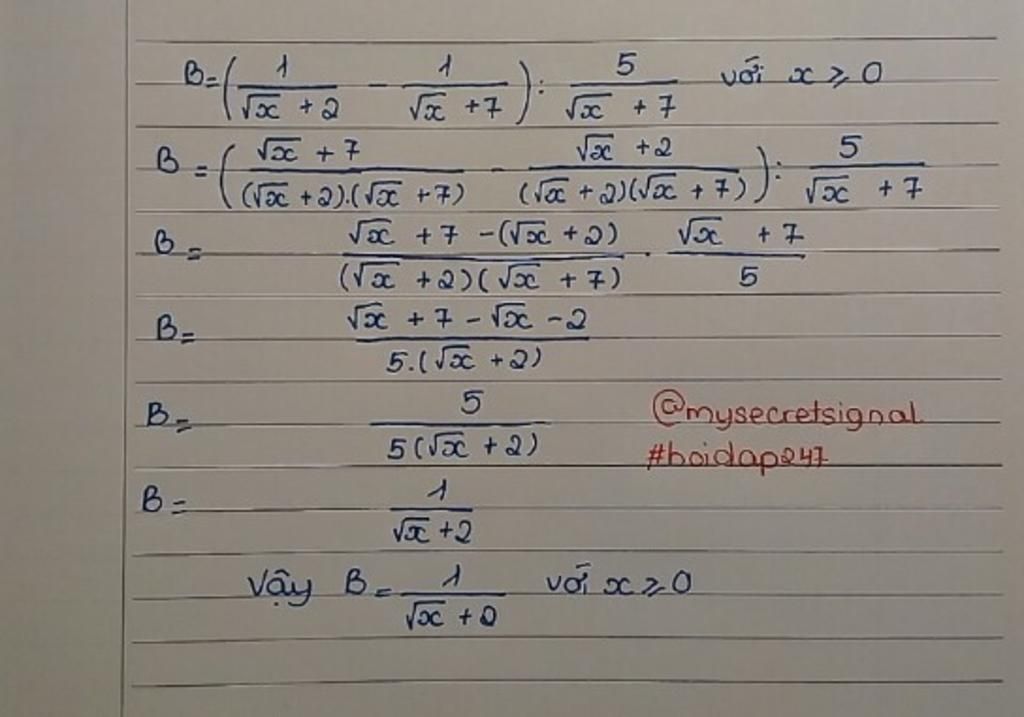 B = (1/(√x + 2) - 1/(√x + 7)) : 5/(√x + 7) với x ≥ 0
B = ((√x + 7)/((√x + 2).(√x + 7)) - (√x + 2)/((√x + 2)(√x + 7))) : 5/(√x + 7)
B = (√x + 7 - (√x + 2))/((√x + 2)(√x + 7)) . (√x + 7)/5
B = (√x + 7 - √x - 2)/(5.(√x + 2))
B = 5/(5(√x + 2))
@mysecretsignal
#hoidap247
B = 1/(√x + 2)
Vậy B = 1/(√x + 2) với x ≥ 0